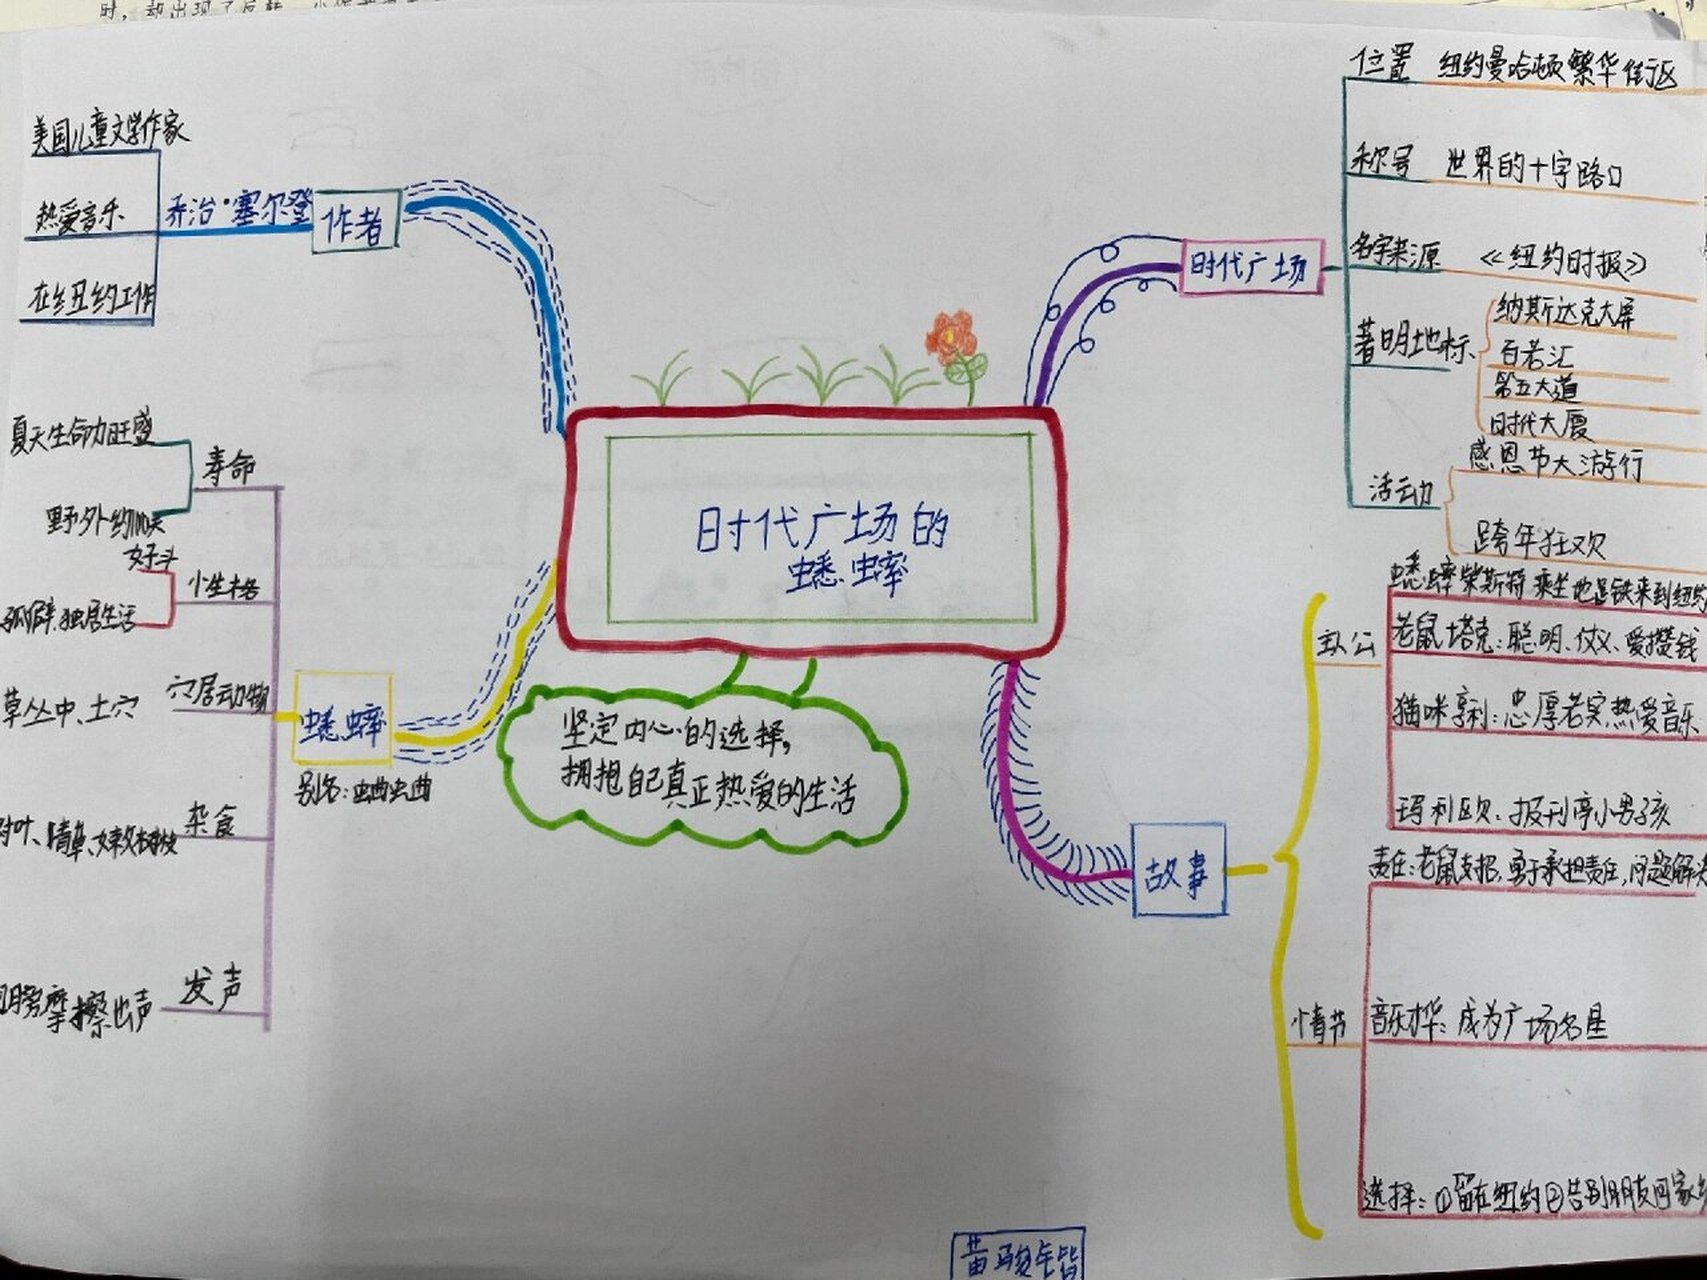 时代广场的
蟋蟀
坚定内心的选择,
拥抱自己真正热爱的生活
作者
乔治·塞尔登
美国儿童文学作家
热爱音乐
在纽约工作
时代广场
位置 纽约曼哈顿繁华街区
称号 世界的十字路口
名字来源 《纽约时报》
著明地标
纳斯达克大屏
百老汇
第五大道
时代大厦
活动
感恩节大游行
跨年狂欢
蟋蟀
别名:蛐蛐
寿命
夏天生命力旺盛
野外约100天
性格
好斗
孤僻、独居生活
穴居动物
草丛中、土穴
杂食
树叶、青草、嫩树枝
发声
翅膀摩擦出声
故事
主人公
蟋蟀柴斯特 乘坐地铁来到纽约
老鼠塔克:聪明、仗义、爱攒钱
猫咪亨利:忠厚老实,热爱音乐
玛利欧、报刊亭小男孩
情节
责任:老鼠支招,勇于承担责任,问题解决
音乐才华:成为广场名星
选择:①留在纽约②告别朋友回家乡
黄骏